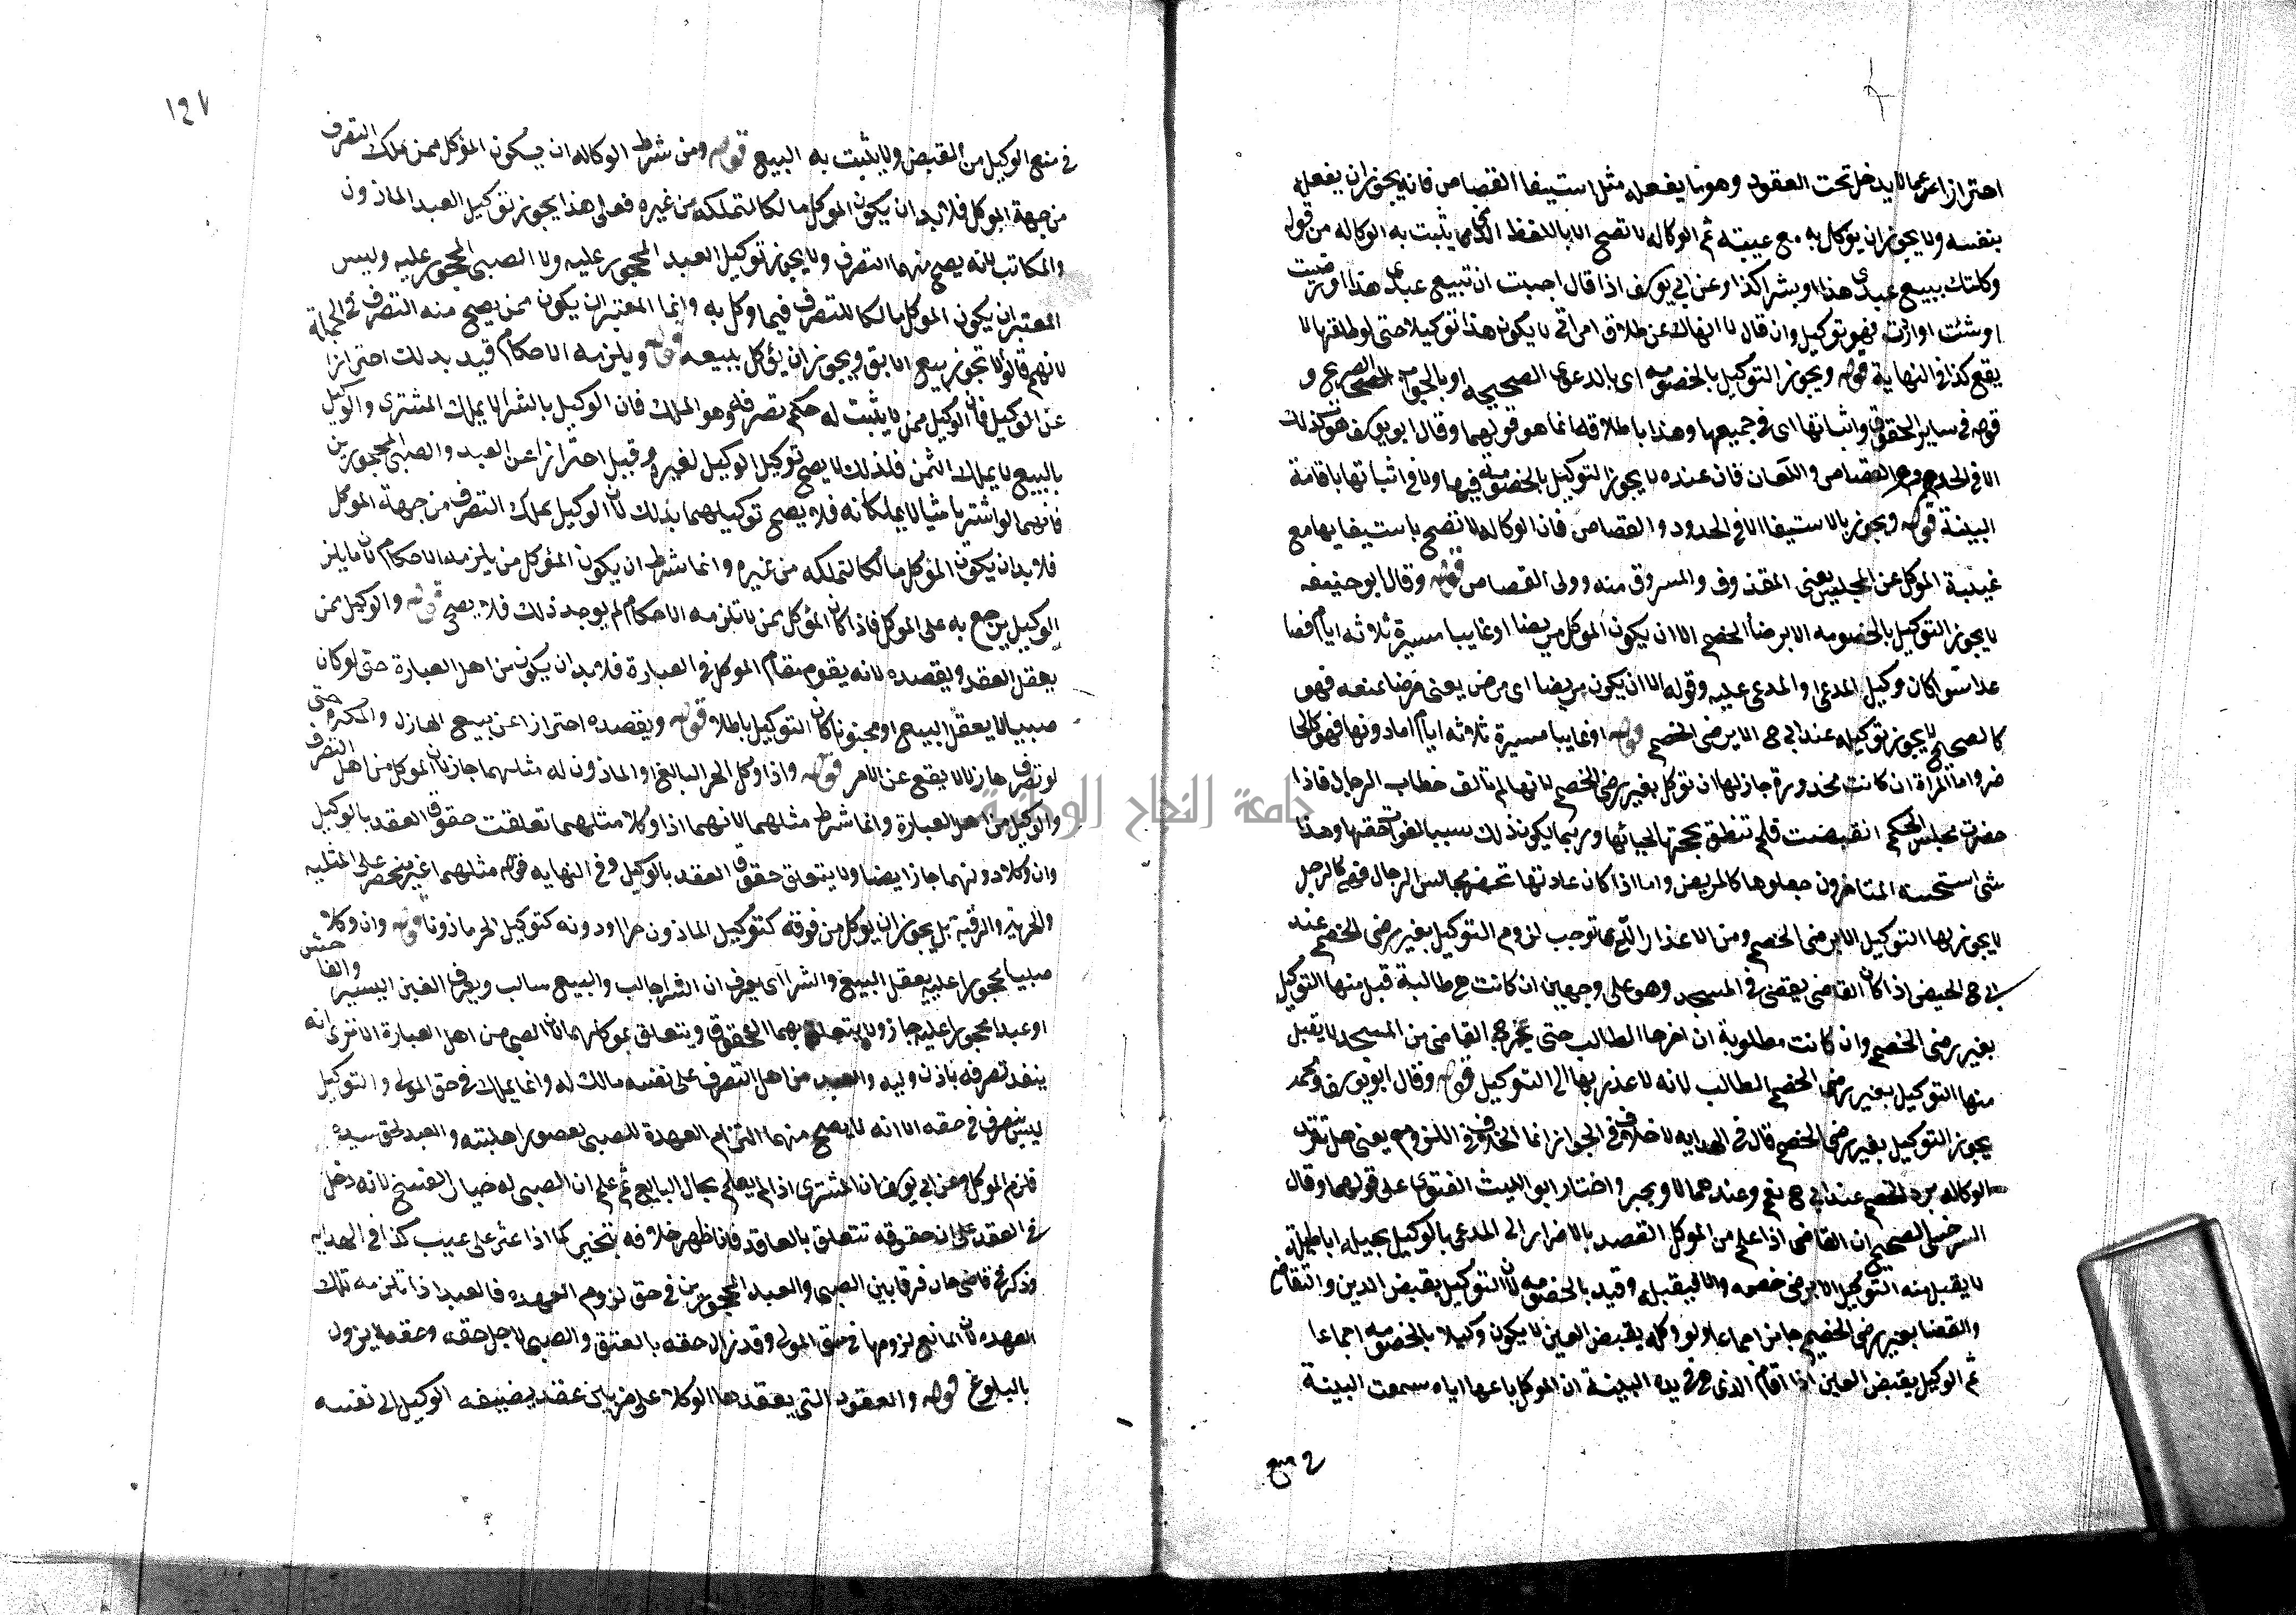 احترازا عن ما لا يدخل تحت العقود وهو ما يفعله مثل استيفا القصاص فانه يجوز ان يفعله
بنفسه ولا يجوز ان يوكل به مع غيبته ثم الوكاله لا تصح الا باللفظ الذي يثبت به الوكاله من قوله
وكلتك ببيع عبدي هذا او بشرا كذا وعن ابي يوسف اذا قال احببت ان تبيع عبدي هذا او رضيت
او شئت او اردت فهو توكيل وان قال لا انهاك عن طلاق امراتي لا يكون هذا توكيلا حتى لو طلقها لا
يقع كذا في النهاية قوله ويجوز التوكيل بالخصومه اي بالدعوى الصحيحه او بالجواب الصريح و
قوله في ساير الحقوق واثباتها اي في جميعها وهذا باطلاقه انما هو قولهما وقال ابو يوسف هو كذلك
الا في الحدود والقصاص واللعان فان عنده لا يجوز التوكيل بالخصومة فيها ولا في اثباتها باقامة
البينة قوله ويجوز بالاستيفا الا في الحدود والقصاص فان الوكاله لا تصح باستيفايها مع
غيبة الموكل عن المجلس يعني المقذوف والمسروق منه وولي القصاص قوله وقال ابو حنيفه
لا يجوز التوكيل بالخصومه الا برضا الخصم الا ان يكون الموكل مريضا او غايبا مسيرة ثلاثه ايام فصا
عدا سوا كان وكيل المدعي او المدعى عليه وقوله الا ان يكون مريضا اي مرض يعني مرضا يمنعه فهو
كالصحيح لا يجوز توكيله عند ابي ح الا برضى الخصم قوله او غايبا مسيرة ثلاثه ايام اما دونها فهو كالحا
ضر واما المرأة ان كانت مخدورة جاز لها ان توكل بغير رضى الخصم لانها لم تالف خطاب الرجال فاذا
حضرت مجلس الحكم انقبضت فلم تنطق بحجتها لحيائها وربما يكون ذلك سببا لفوات حقها وهذا
شي استحسنه المتاخرون جعلوها كالمريض واما اذا كان عادتها تحضر مجالس الرجال فهي كالرجل
لا يجوز لها التوكيل الا برضى الخصم ومن الاعذار التي توجب لزوم التوكيل بغير رضى الخصم عند
ابي ح الحيض اذا كان القاضي يقضي في المسجد وهو على وجهين ان كانت هي طالبة قبل منها التوكيل
بغير رضى الخصم وان كانت مطلوبة ان اخرها الطالب حتى يخرج القاضي من المسجد لا يقبل
منها التوكيل بغير رضى الخصم الطالب لانه لا عذر بها الى التوكيل قوله وقال ابو يوسف ومحمد
يجوز التوكيل بغير رضى الخصم قال في الهدايه لا خلاف في الجواز انما الخلاف في اللزوم يعني هل ترتد
الوكاله برد الخصم عند ابي ح نعم وعندهما لا ويجبر واختار ابو الليث الفتوى على قولهما وقال
السرخسي الصحيح ان القاضي اذا علم من الموكل القصد بالاضرار الى المدعي بالوكيل بحيله اباطيله
لا يقبل منه التوكيل الا برضى خصمه والا فيقبله وقيد بالخصومه لان التوكيل بقبض الدين والتقاضي
والقضا بغير رضى الخصم جايز اجماعا ولو وكله بقبض العين لا يكون وكيلا بالخصومه اجماعا
ثم الوكيل بقبض العين اذا اقام الذي هي في يده البينة ان الموكل باعها اياه سمعت البينة
في منع
١٩٧
في منع الوكيل من القبض ولا يثبت به البيع قوله ومن شرط الوكاله ان يكون الموكل ممن يملك التصرف
من جهة الموكل فلا بد ان يكون الموكل مالكا لتملكه من غيره فعلى هذا يجوز توكيل العبد الماذون
والمكاتب لانه يصح منهما التصرف ولا يجوز توكيل العبد المحجور عليه ولا الصبي المحجور عليه وليس
المعتبر ان يكون الموكل مالكا للتصرف فيما وكل به وانما المعتبر ان يكون ممن يصح منه التصرف في الجملة
لانهم قالوا لا تجوز بيع الابق ويجوز ان يوكل ببيعه قوله ويلزمه الاحكام قيد بذلك احترازا
عن الوكيل فان الوكيل ممن لا يثبت له حكم تصرفه وهو الملك فان الوكيل بالشرا لا يملك المشترى والوكيل
بالبيع لا يملك الثمن فلذلك لا يصح توكيل الوكيل لغيره وقيل احترازا عن العبد والصبي المحجورين
فانهما لو اشتريا شيا لا يملكانه فلا يصح توكيلهما بذلك لان الوكيل يملك التصرف من جهة الموكل
فلا بد ان يكون الموكل مالكا لتملكه من غيره وانما شرط ان يكون الموكل من يلزمه الاحكام لان ما يلزم
الوكيل يرجع به على الموكل فاذا كان الموكل ممن لا تلزمه الاحكام لم يوجد ذلك فلا يصح قوله والوكيل ممن
يعقل العقد ويقصده لانه يقوم مقام الموكل في العبارة فلا بد ان يكون من اهل العبارة حتى لو كان
صبيا لا يعقل البيع او مجنونا كان التوكيل باطلا قوله ويقصده احترازا عن بيع الهازل والمكره حتى
لو تصرف هازلا لا يقع عن الامر قوله واذا وكل الحر البالغ او الماذون له مثلهما جاز لان الموكل من اهل التصرف
والوكيل من اهل العبارة وانما شرط مثلهما لانهما اذا وكلا مثلهما تعلقت حقوق العقد بالوكيل
وان وكلا دونهما جاز ايضا ولا يتعلق حقوق العقد بالوكيل وفي النهايه قوله مثلهما غير منحصر على المثليه
والحرية والرقية بل يجوز ان يوكل من فوقه كتوكيل الماذون حرا او دونه كتوكيل الحر ماذونا قوله وان وكلا
صبيا محجورا عليه يعقل البيع والشرا اي يعرف ان الشرا جالب والبيع سالب ويعرف الغبن اليسير والفاحش
او عبدا محجورا عليه جاز ولا يتعلق بهما الحقوق ويتعلق بموكلهما لان الصبي من اهل العبارة الا ترى انه
ينفذ تصرفه باذن وليه والعبد من اهل التصرف على نفسه مالك له وانما يملك في حق المولى والتوكيل
ليس تصرف في حقه الا انه لا يصح منهما التزام العهدة للصبي لقصور اهليته والعبد لحق سيده
فلزم الموكل وعن ابي يوسف ان المشتري اذا لم يعلم بحال البايع ثم علم ان الصبي له خيار الفسخ لانه دخل
في العقد على ان حقوقه تتعلق بالعاقد فاذا ظهر خلافه يتخير كما اذا عثر على عيب كذا في الهدايه
وذكر في قاضي خان فرقا بين الصبي والعبد المحجورين في حق لزوم العهده فالعبد اذا تلزمه تلك
العهده لان المانع لزومها في حق المولى وقد زال حقه بالعتق والصبي لاجل حقه وحقه لا يزول
بالبلوغ قوله والعقود التي يعقدها الوكلا على ضربين عقد يضيفه الوكيل الى نفسه
جامعة النجاح الوطنية